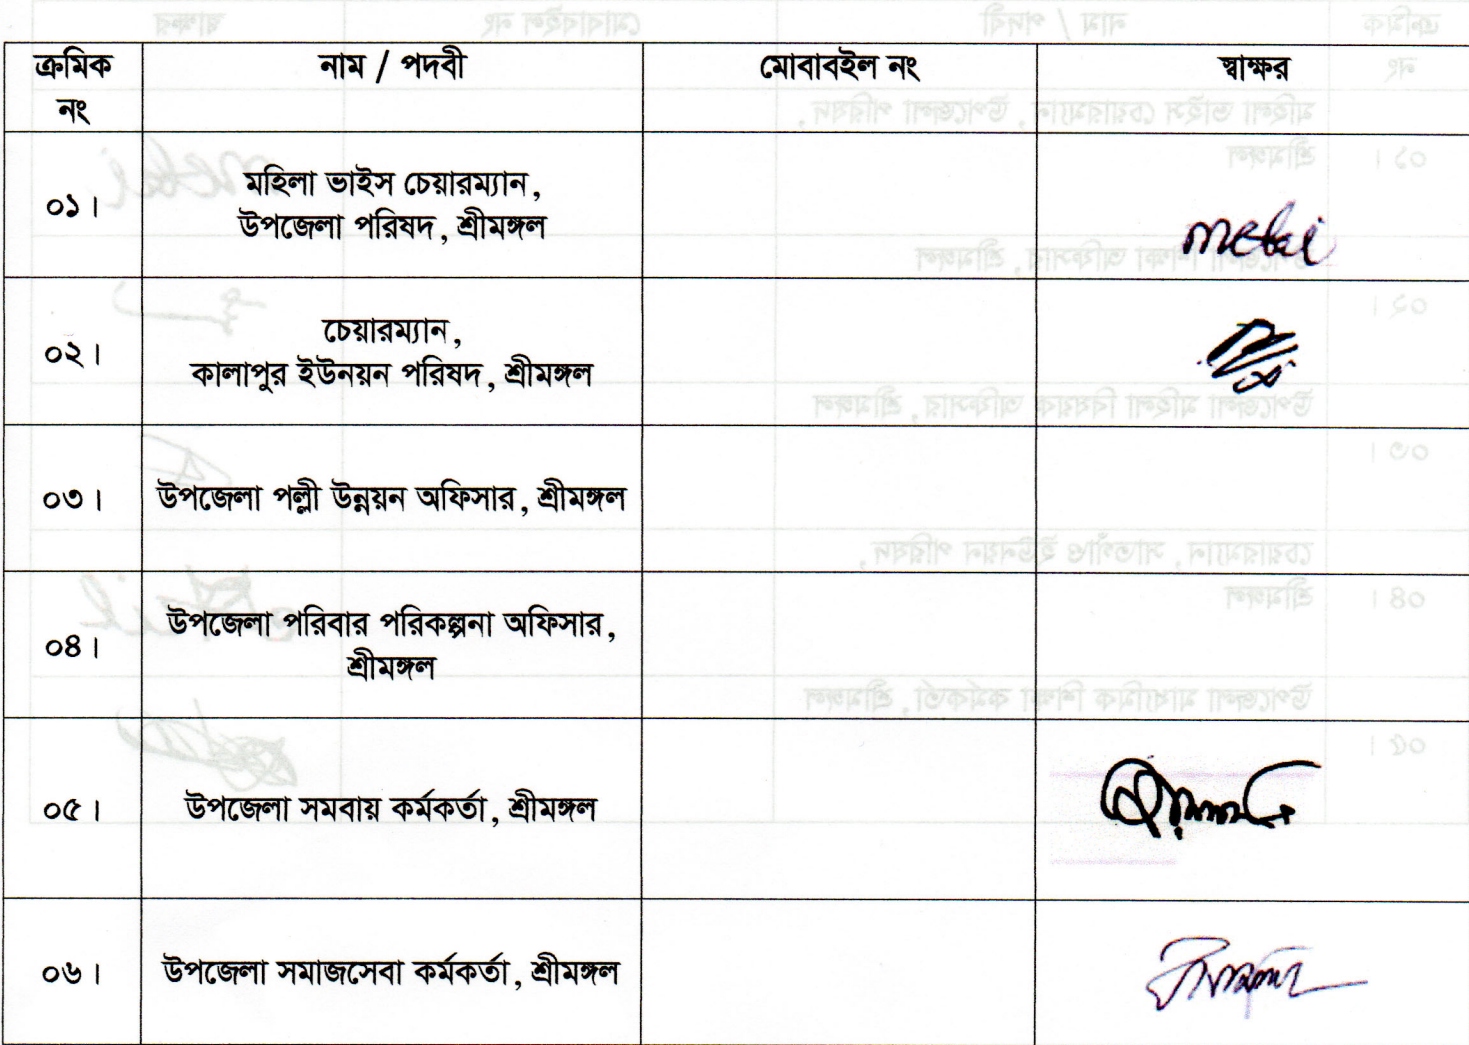 ক্রমিক নং নাম / পদবী মোবাবইল নং স্বাক্ষর
০১। মহিলা ভাইস চেয়ারম্যান,
উপজেলা পরিষদ, শ্রীমঙ্গল
০২। চেয়ারম্যান,
কালাপুর ইউনয়ন পরিষদ, শ্রীমঙ্গল
০৩। উপজেলা পল্লী উন্নয়ন অফিসার, শ্রীমঙ্গল
০৪। উপজেলা পরিবার পরিকল্পনা অফিসার,
শ্রীমঙ্গল
০৫। উপজেলা সমবায় কর্মকর্তা, শ্রীমঙ্গল
০৬। উপজেলা সমাজসেবা কর্মকর্তা, শ্রীমঙ্গল